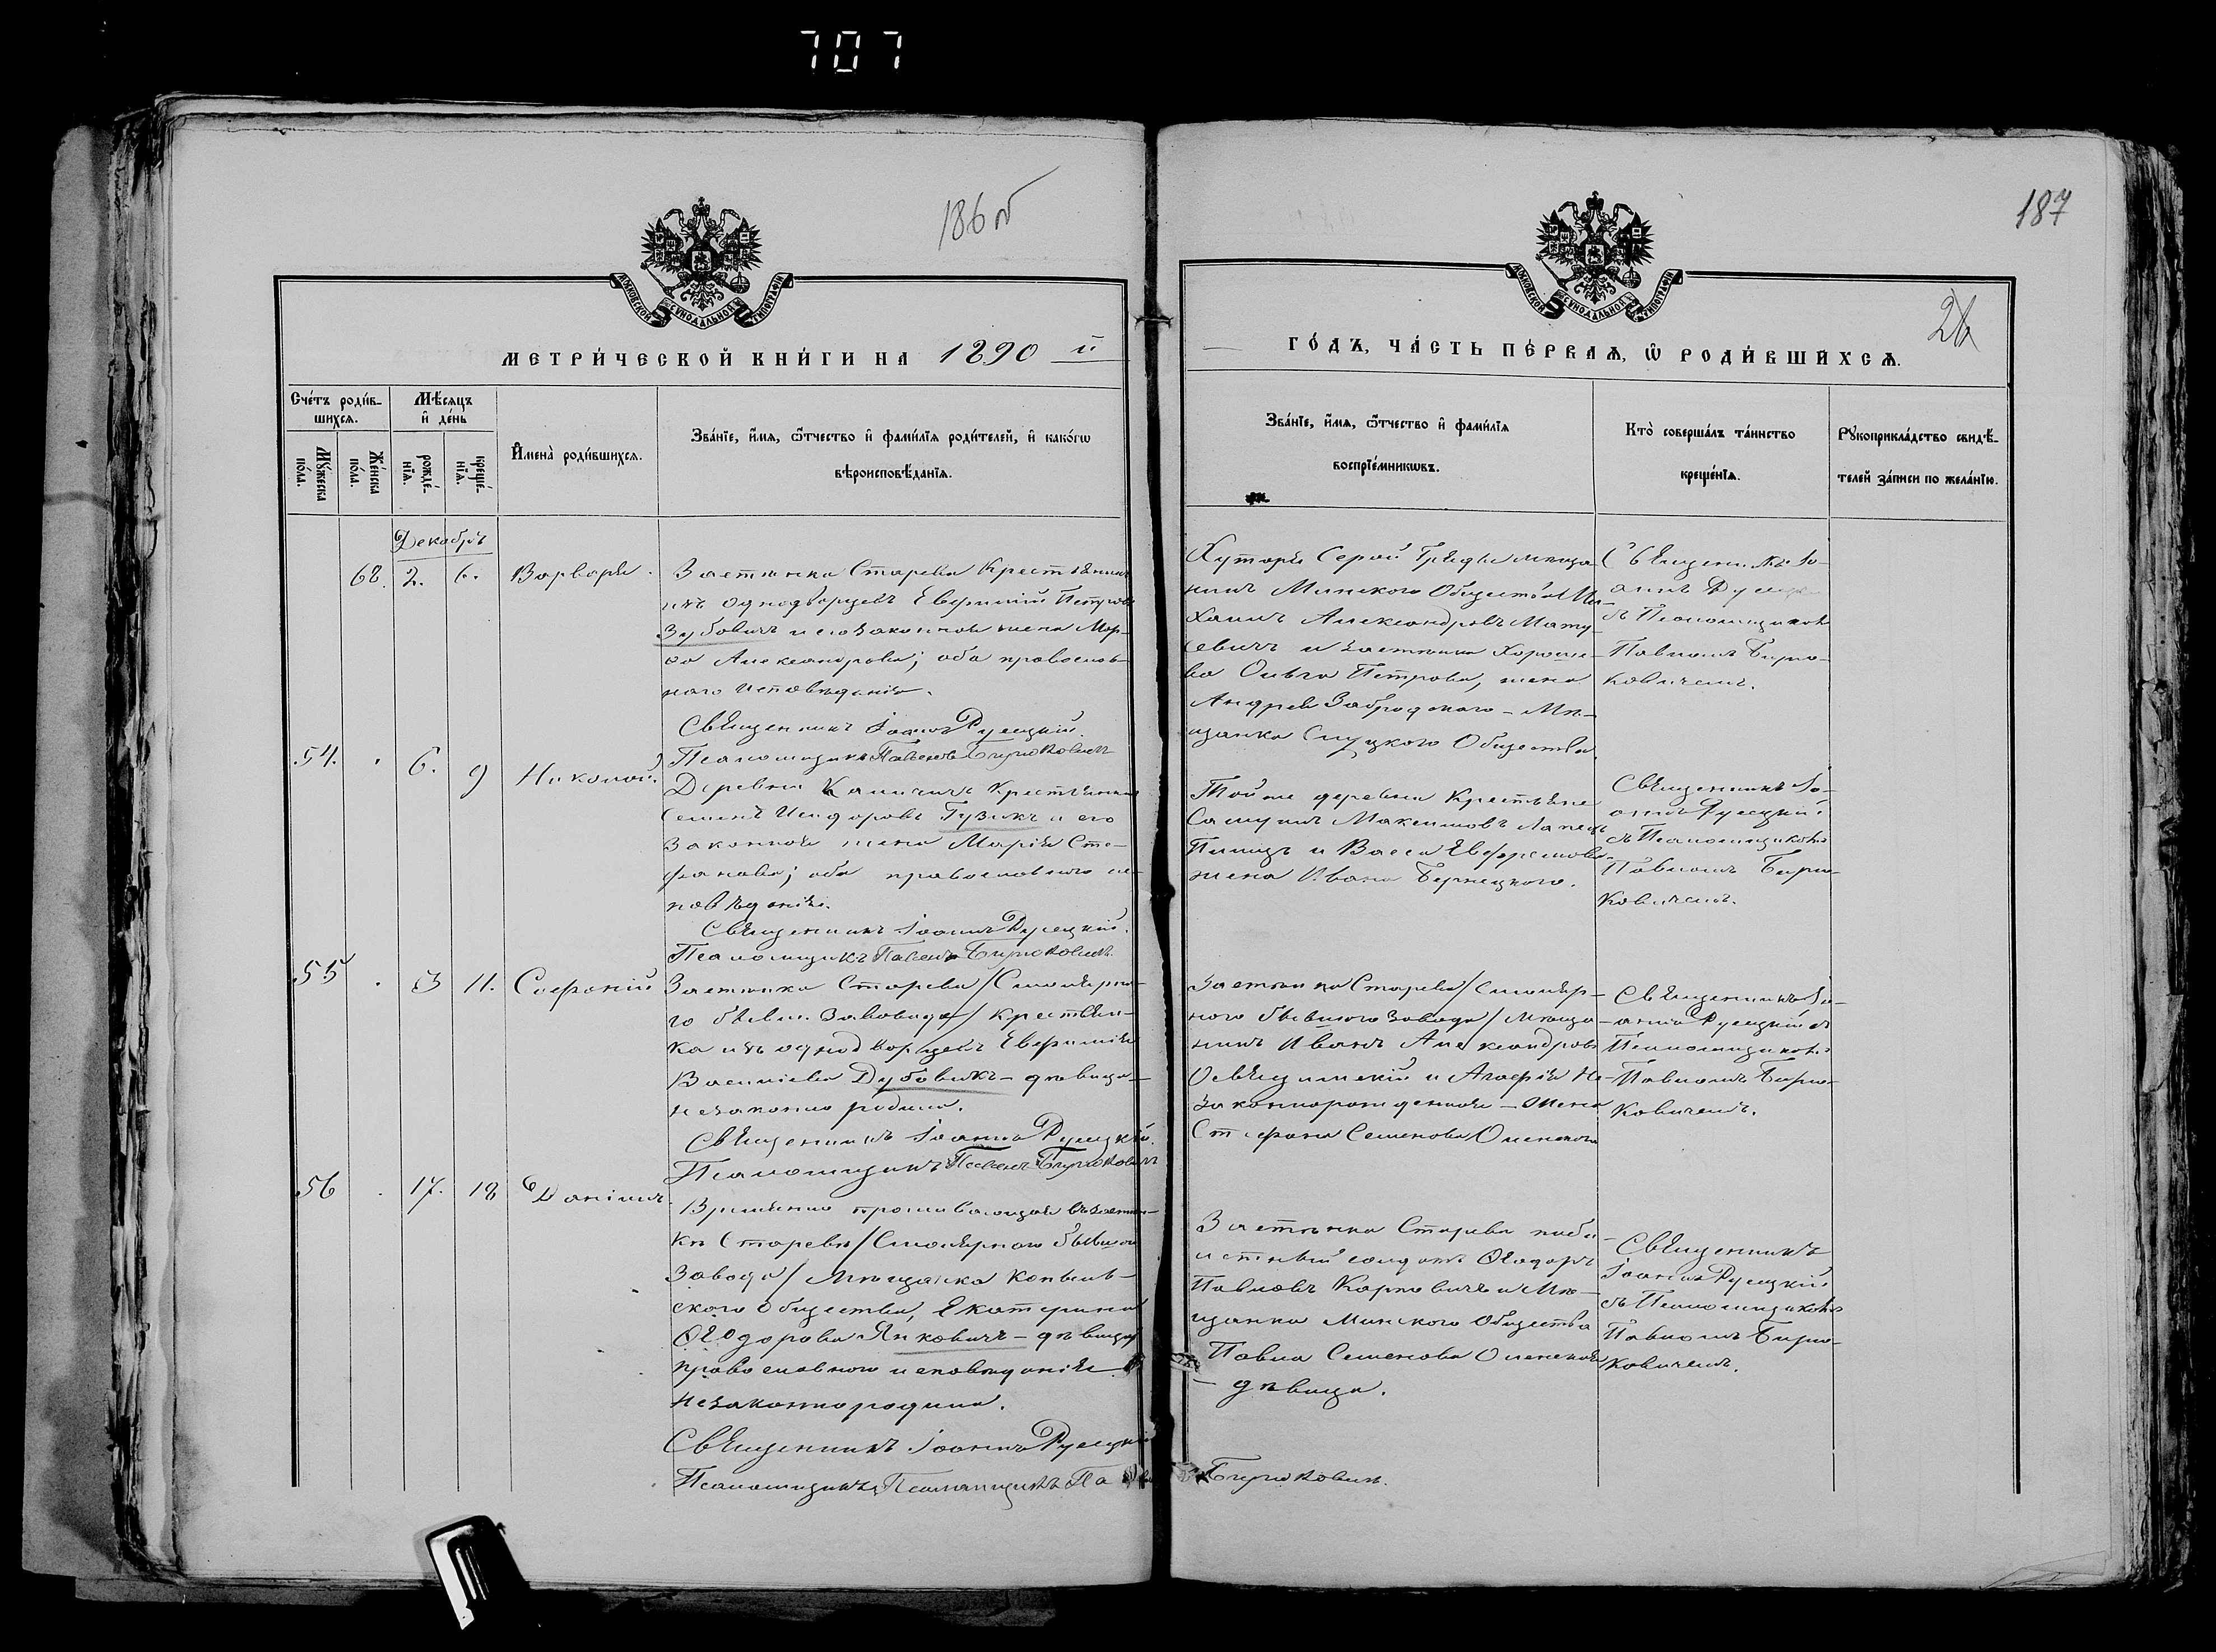 707
186 об
187
26
МОСКОВСКОЙ СѴНОДАЛЬНОЙ ТИПОГРАФІИ
МОСКОВСКОЙ СѴНОДАЛЬНОЙ ТИПОГРАФІИ
МЕТРИ́ЧЕСКОЙ КНИ́ГИ НА 1890 й
ГО́ДЪ, ЧА́СТЬ ПЕ́РВАѦ, Ѡ҆ РОДИ́ВШИХСѦ.
Сче́тъ роди́в-
шихсѧ.
Мѣ́сѧцъ
и҆ де́нь
Мꙋ́жеска
по́ла.
Же́нска
по́ла.
рожде́-
нїѧ.
креще́-
нїѧ.
И҆мена̀ роди́вшихсѧ.
Зва́нїе, и҆́мѧ, ѻ҆́тчество и҆ фами́лїѧ роди́телей, и҆ како́гѡ
вѣроисповѣ́данїѧ.
Зва́нїе, и҆́мѧ, ѻ҆́тчество и҆ фами́лїѧ
воспрїе́мникѡвъ.
Кто̀ соверша́лъ та́инство
креще́нїѧ.
Рꙋкоприкла́дство свидѣ́-
телей за́писи по жела́нїю.
Декабрь
68. 2. 6. Варвара.
Застѣнка Старева Крестьянинъ
изъ однодворцевъ Евфимій Петровъ
Зубовичъ и его законная жена Мар-
ѳа Александрова; оба православ-
наго исповѣданія.
Священникъ Іоаннъ Русецкій.
Псаломщикъ Павелъ Бирюковичъ
Хутора Серой Гряды мѣща-
нинъ Минскаго Общества Ми-
хаилъ Александровъ Мату-
севичъ и застѣнка
Ольга Петрова, жена
Андрея Забродскаго – Мѣ-
щанка Слуцкаго Общества
Священникъ Іо-
аннъ
съ Псаломщикомъ
Павломъ Бирю-
ковичемъ.
54. 6. 9 Николай.
Деревни Крестьянинъ
Семенъ Исидоровъ Гузикъ и его
законная жена Марія Сте-
фанова; оба православнаго ис-
повѣданія.
Священникъ Іоаннъ Русецкій.
Псаломщикъ Павелъ Бирюковичъ.
Той же деревни Крестьяне
Самуилъ Максимовъ
и Васса Ефремова
жена Ивана Бернецкого.
Священникъ Іо-
аннъ Русецкій
съ Псаломщикомъ
Павломъ Бирю-
ковичемъ.
55 8 11. Софроній
Застѣнка Старева /Смолярна-
го бывш. Завода/ крестьян-
ка изъ однодворцевъ Евфимія
Васильева Дубовикъ – дѣвица –
незаконно родила.
Священникъ Іоаннъ Русецкій.
Псаломщикъ Павелъ Бирюковичъ
Застѣнка Старева /Смоляр-
ного бывшаго завода/ Мѣща-
нинъ Иванъ Александровъ
Освецимскій и Агафія Не-
законнорожденная – жена
Стефана Семенова
Священникъ Іо-
аннъ Русецкій съ
Псаломщикомъ
Павломъ Бирю-
ковичемъ.
56 17. 18 Даніилъ.
Временно проживающая въ застѣн-
кѣ Старевѣ /Смолярнаго бывшаго
завода/ Мѣщанка Копыль-
скаго общества, Екатерина
Ѳеодорова Янковичъ – дѣвица
православнаго исповѣданія
незаконнородила.
Священникъ Іоаннъ Русецкій
Псаломщикъ Псаломщикъ Павелъ Бирюковичъ.
Застѣнка Старева
солдатъ Ѳеодоръ
Павловъ Карповичъ и Мѣ-
щанка Минскаго Общества
Павла Семенова
– дѣвица.
Священникъ
Іоаннъ Русецкій
съ Псаломщикомъ
Павломъ Бирю-
ковичемъ.